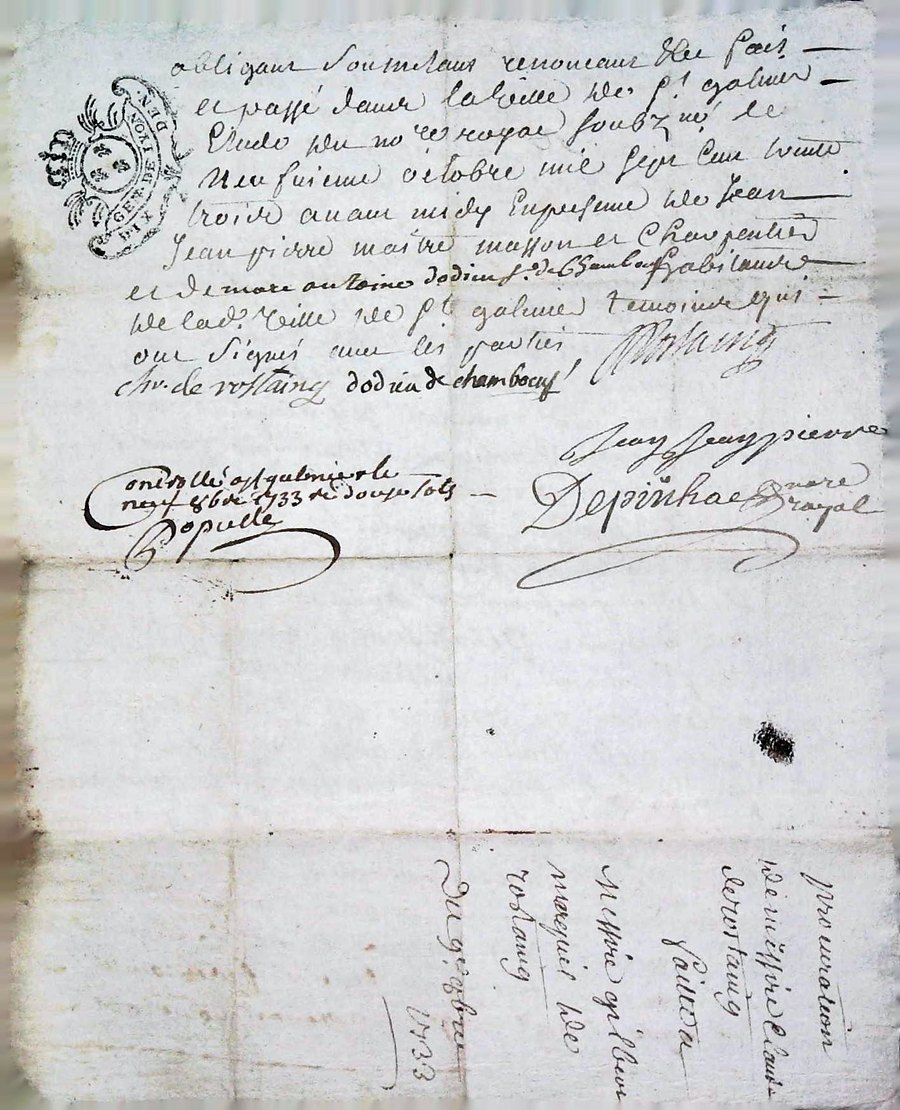 obligant soumettant renonceant &c fait
et passé dans la ville de St galmier
Etude du no.re royal soubzné le
neufvieme octobre mil sept cent trente
trois avant midy En presence de Jean
Jean pierre maitre masson et Charpentier
et de marc antoine dodieu sr. de Chambœuf habitants
de lad. ville de St galmier temoins qui
ont signés avec les parties
Rostaing
chr. de rostaing dodieu de chambœuf
Jean Jean pierre
Depinhac nore royal
Controllé a st galmier le
neuf 8bre 1733 re douze sols
Populle
GEN DE LION
DEN
DIX
procuration
de messire Claude
de rostaing
faitte a
messire gilbert
marquis de
rostaing
Du 9e 8bre
1733